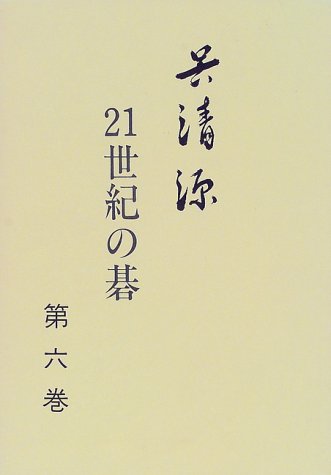 呉清源
21世紀の碁
第六巻